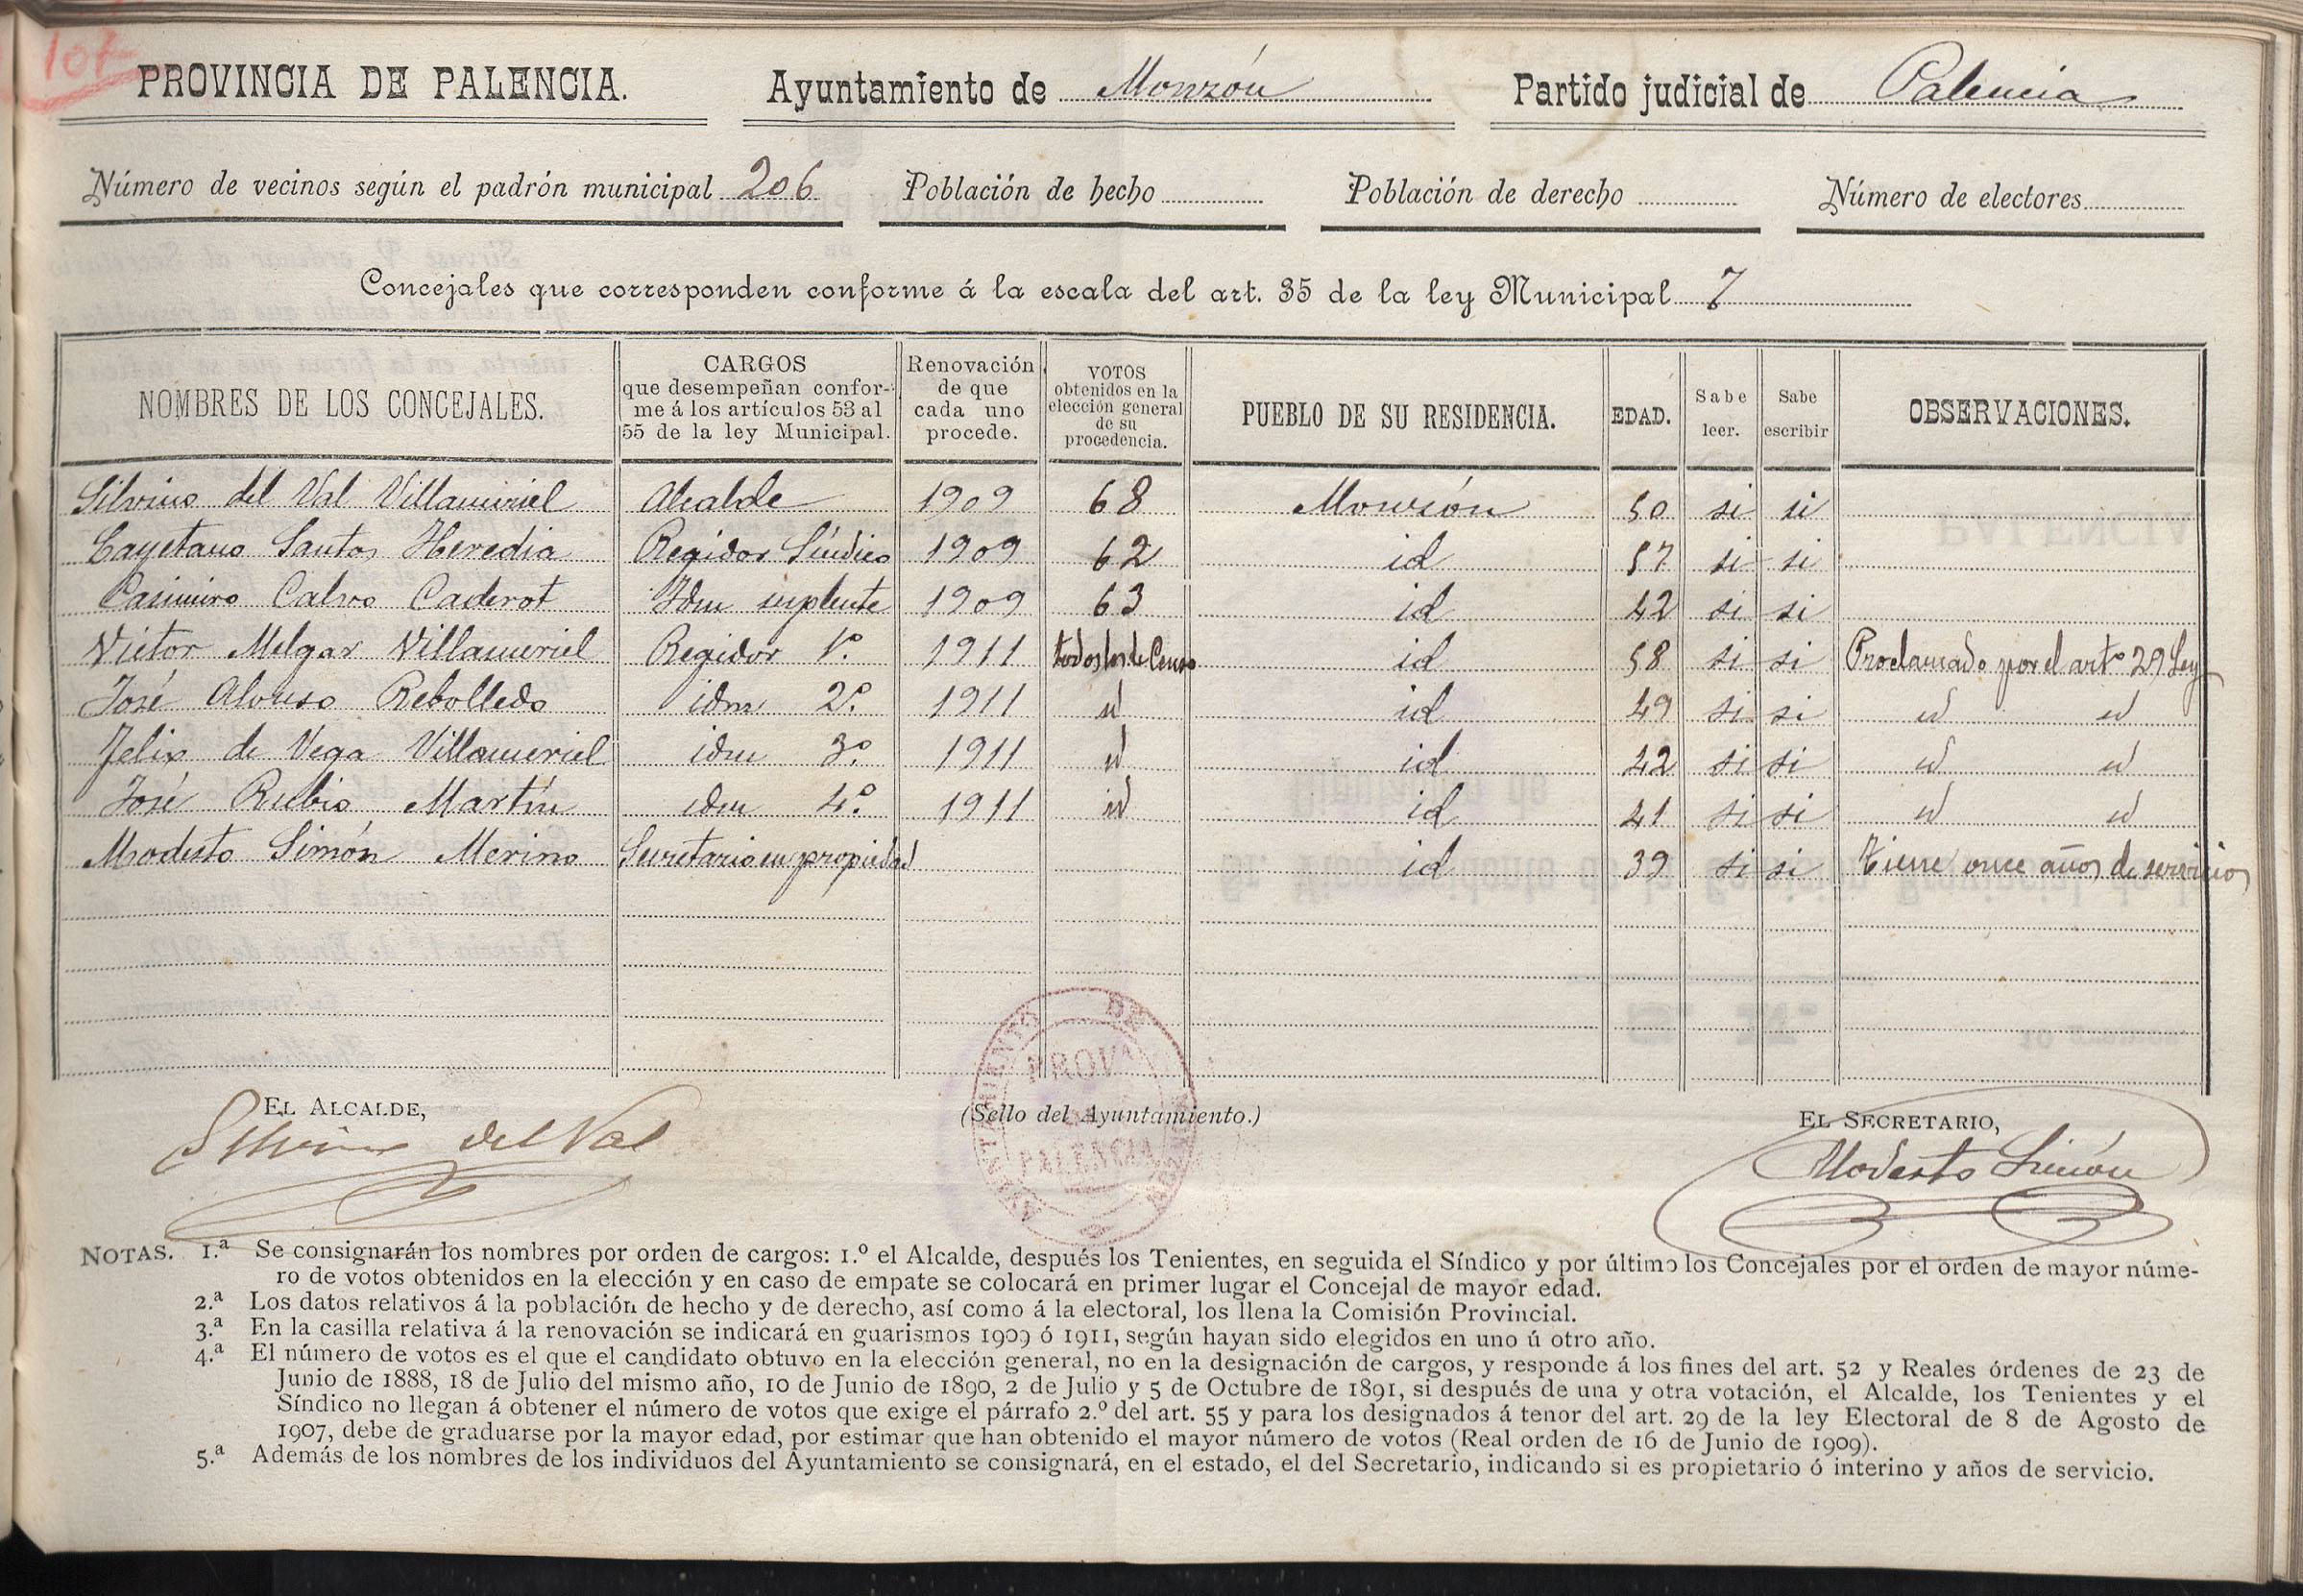 107
PROVINCIA DE PALENCIA. Ayuntamiento de Monzón Partido judicial de Palencia
Número de vecinos según el padrón municipal 206 Población de hecho Población de derecho Número de electores
Concejales que corresponden conforme á la escala del art. 35 de la ley Municipal 7
NOMBRES DE LOS CONCEJALES. CARGOS que desempeñan confor- me á los artículos 53 al 55 de la ley Municipal. Renovación de que cada uno procede. VOTOS obtenidos en la elección general de su procedencia. PUEBLO DE SU RESIDENCIA. EDAD. Sabe leer. Sabe escribir OBSERVACIONES.
Silvino del Val Villameriel Alcalde 1909 68 Monzón 50 si si
Cayetano Santos Heredia Regidor Síndico 1909 62 id 57 si si
Casimiro Calvo Caderot Idm suplente 1909 63 id 42 si si
Victor Melgar Villameriel Regidor 1.º 1911 todos los de Censo id 58 si si Proclamado por el artº 29 Ley
José Alonso Rebolledo idm 2.º 1911 id id 49 si si id id
Felix de Vega Villameriel idm 3.º 1911 id id 42 si si id id
José Rubio Martín idm 4.º 1911 id id 41 si si id id
Modesto Simón Merino Secretario en propiedad id 39 si si tiene once años de servicios
EL ALCALDE, (Sello del Ayuntamiento.) EL SECRETARIO,
Silvino del Val Modesto Simón
AYUNTAMIENTO DE MONZÓN
PROVA
DE
PALENCIA
NOTAS. 1.ª Se consignarán los nombres por orden de cargos: 1.º el Alcalde, después los Tenientes, en seguida el Síndico y por último los Concejales por el orden de mayor núme-
ro de votos obtenidos en la elección y en caso de empate se colocará en primer lugar el Concejal de mayor edad.
2.ª Los datos relativos á la población de hecho y de derecho, así como á la electoral, los llena la Comisión Provincial.
3.ª En la casilla relativa á la renovación se indicará en guarismos 1909 ó 1911, según hayan sido elegidos en uno ú otro año.
4.ª El número de votos es el que el candidato obtuvo en la elección general, no en la designación de cargos, y responde á los fines del art. 52 y Reales órdenes de 23 de
Junio de 1888, 18 de Julio del mismo año, 10 de Junio de 1890, 2 de Julio y 5 de Octubre de 1891, si después de una y otra votación, el Alcalde, los Tenientes y el
Síndico no llegan á obtener el número de votos que exige el párrafo 2.º del art. 55 y para los designados á tenor del art. 29 de la ley Electoral de 8 de Agosto de
1907, debe de graduarse por la mayor edad, por estimar que han obtenido el mayor número de votos (Real orden de 16 de Junio de 1909).
5.ª Además de los nombres de los individuos del Ayuntamiento se consignará, en el estado, el del Secretario, indicando si es propietario ó interino y años de servicio.